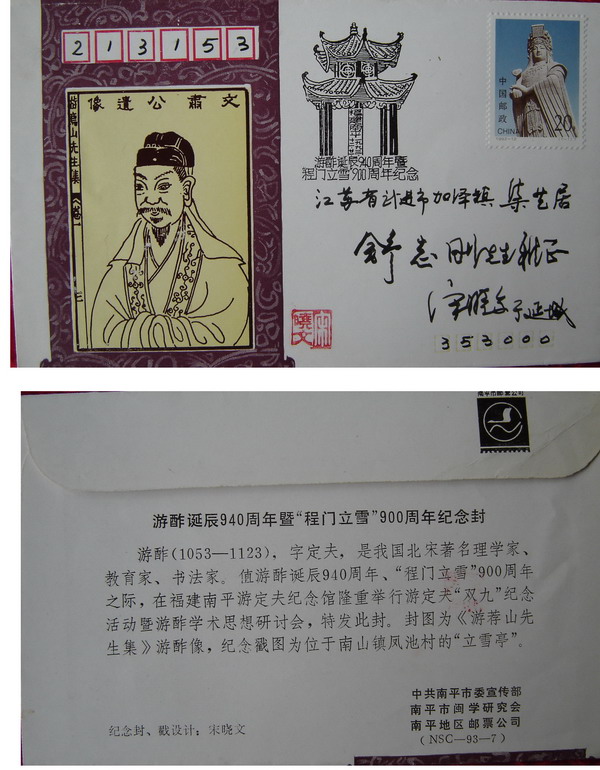 213153
文肅公遺像
中国邮政
CHINA
20
游酢诞辰940周年暨
程门立雪900周年纪念
江苏省武进市加泽镇
先生雅正
353000
宋
曉文
南平市邮票公司
游酢诞辰940周年暨“程门立雪”900周年纪念封
游酢(1053—1123)，字定夫，是我国北宋著名理学家、
教育家、书法家。值游酢诞辰940周年、“程门立雪”900周年
之际，在福建南平游定夫纪念馆隆重举行游定夫“双九”纪念
活动暨游酢学术思想研讨会，特发此封。封图为《游荐山先
生集》游酢像，纪念戳图为位于南山镇凤池村的“立雪亭”。
中共南平市委宣传部
南平市闽学研究会
南平地区邮票公司
(NSC—93—7)
纪念封、戳设计：宋晓文